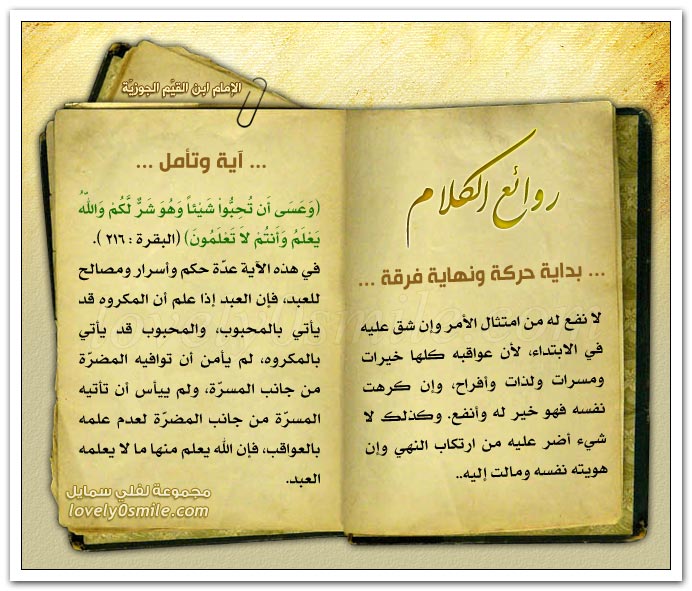 الإمام ابن القيَّم الجوزيَّة
روائع الكلام
... بداية حركة ونهاية فرقة ...
لا نفع له من امتثال الأمر وإن شق عليه
في الابتداء، لأن عواقبه كلها خيرات
ومسرات ولذات وأفراح، وإن كرهت
نفسه فهو خير له وأنفع. وكذلك لا
شيء أضر عليه من ارتكاب النهي وإن
هويته نفسه ومالت إليه..
... آية وتأمل ...
(وَعَسَى أَن تُحِبُّواْ شَيْئاً وَهُوَ شَرٌّ لَّكُمْ وَاللّهُ
يَعْلَمُ وَأَنتُمْ لاَ تَعْلَمُونَ) (البقرة : ٢١٦ ).
في هذه الآية عدّة حكم وأسرار ومصالح
للعبد، فإن العبد إذا علم أن المكروه قد
يأتي بالمحبوب، والمحبوب قد يأتي
بالمكروه، لم يأمن أن توافيه المضرّة
من جانب المسرّة، ولم ييأس أن تأتيه
المسرّة من جانب المضرّة لعدم علمه
بالعواقب، فإن الله يعلم منها ما لا يعلمه
العبد.
مجموعة لفلي سمايل
lovely0smile.com
lovely0smile.com